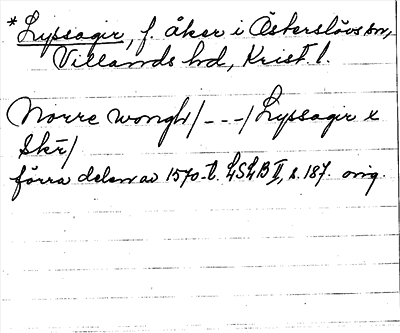 *Lyssagir, f. åker i Österslövs sn,
Villands hd, Krist. l.
Norre wongh/---/Lyssagir x
Skr/
förra delen av 1570-t. LSLB II, s. 187. orig.